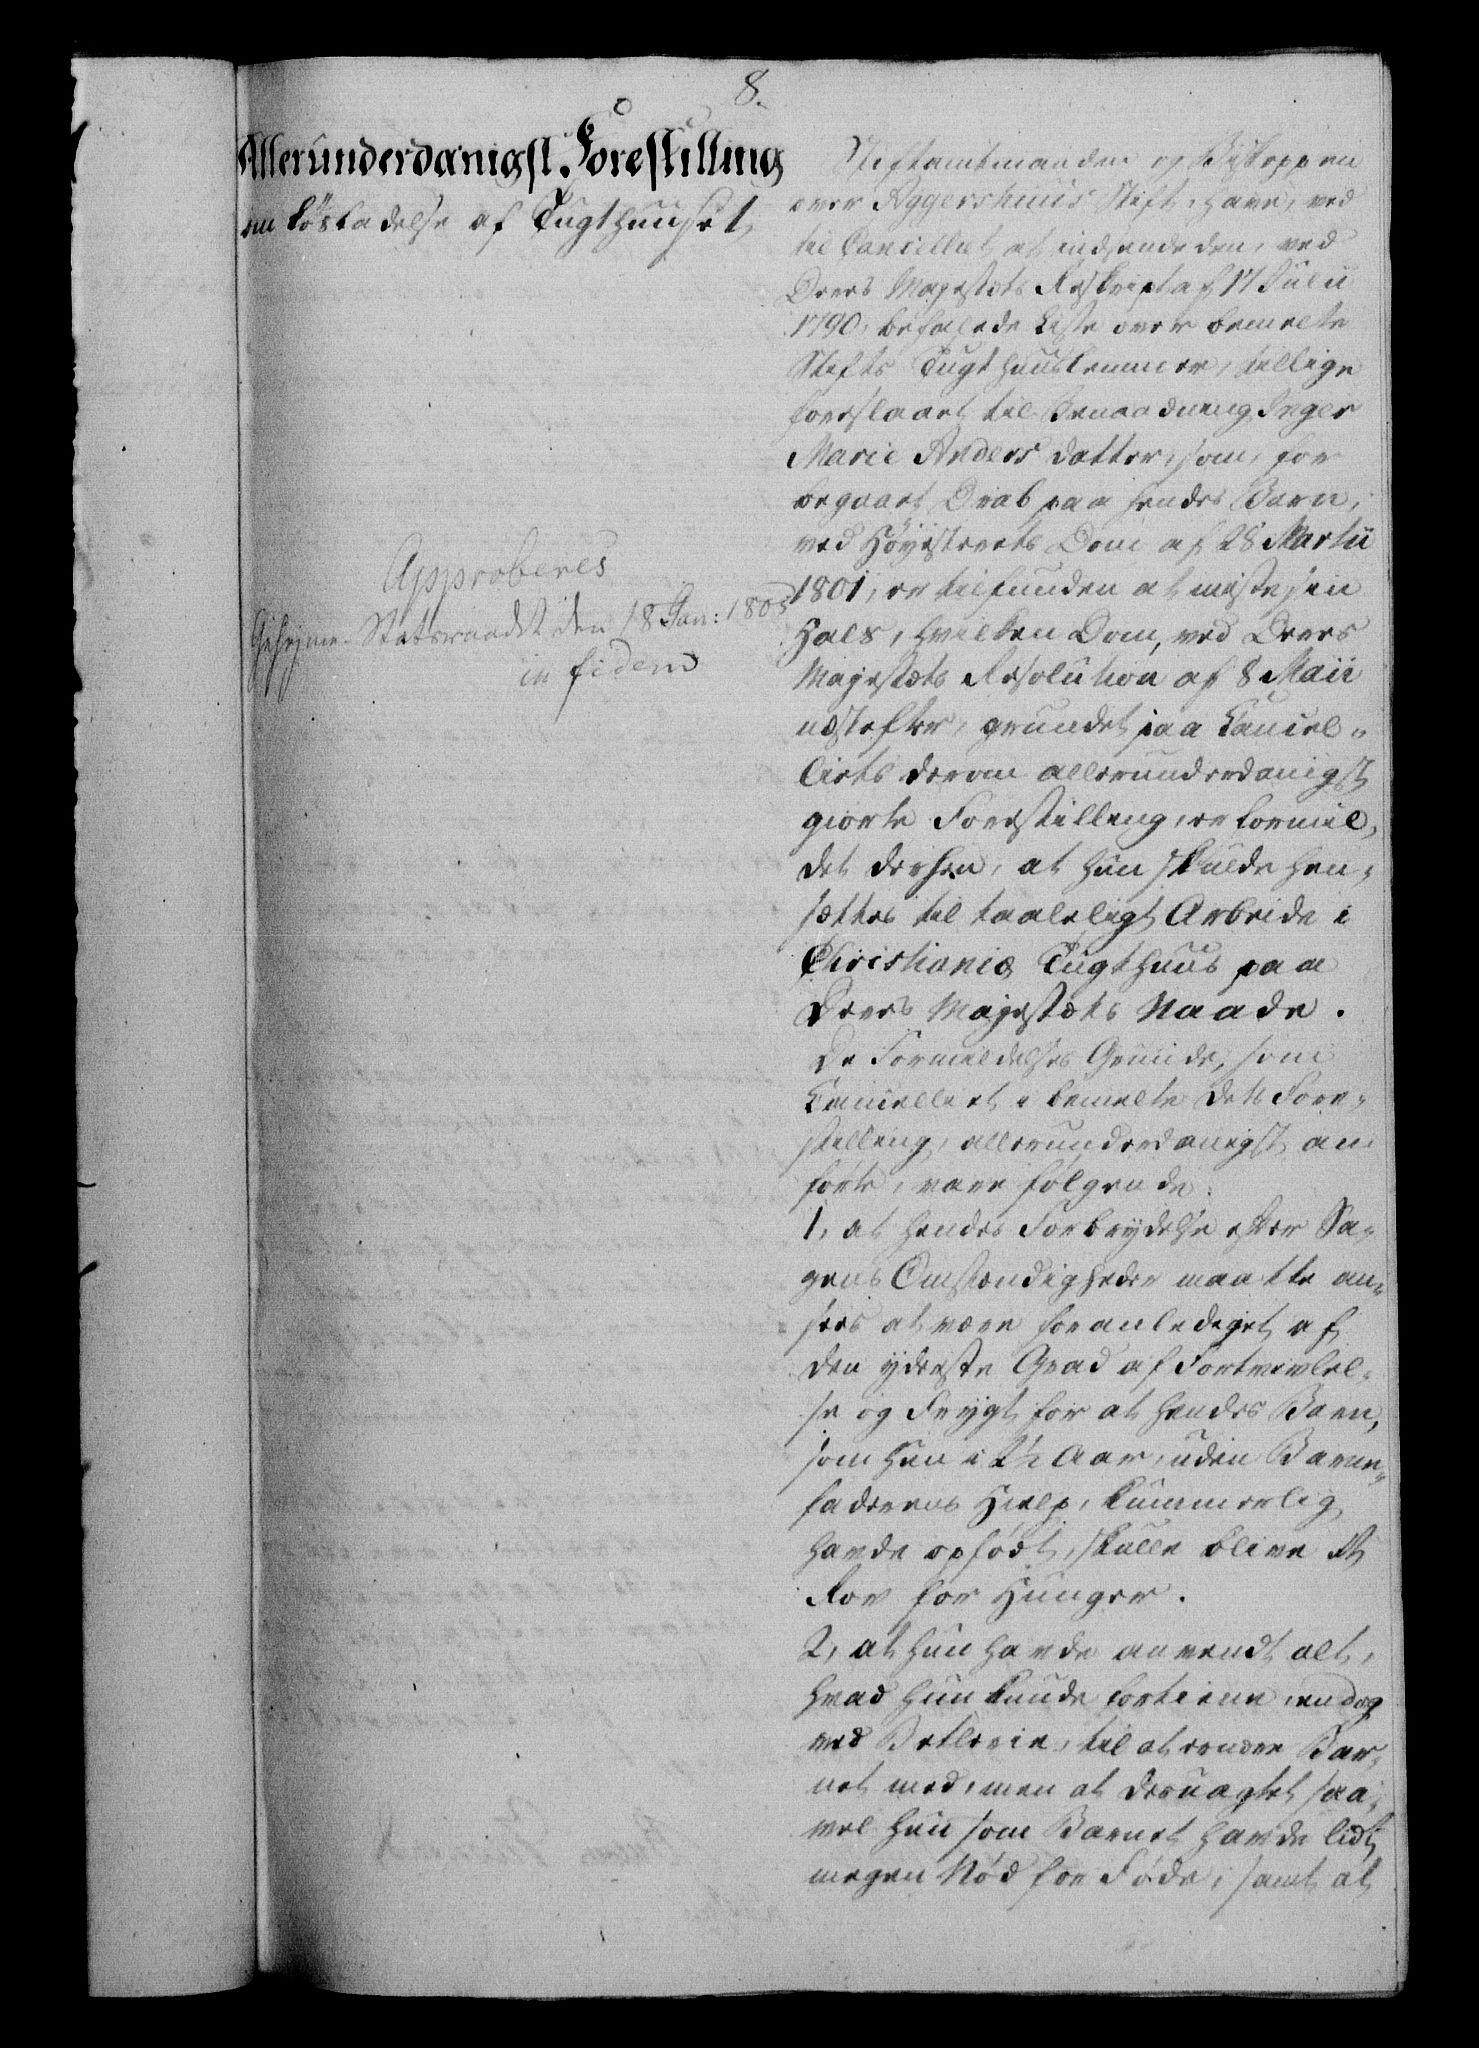 8.
Allerunderdanigst Forestilling
om Løsladelse af Tugthuuset,
Approberes
Geheime-Statsraadet den 18 Jan: 1805
in fidem
Stiftamtmanden og Biskoppen
over Aggershuus Stift, have, ved
til Cancelliet at indsende den, ved
Deres Majestæts Reskript af 17 Julii
1790, befalede Liste over bemelte
Stifts Tugthuuslemmer, tillige
foreslaaet til Benaadning Inger
Marie Anders datter, som, for
begaaet Drab paa hendes Barn,
ved Høyesterets Dom af 28 Martii
1801, er tilfunden at miste sin
Hals, hvilken Dom, ved Deres
Majestæts Resolution af 8 Maii
næstefter, grundet paa Cancel-
liets derom allerunderdanigst
giorte Forestilling, er formil-
det derhen, at hun skulde hen-
sættes til taaleligt Arbeide i
Christianiæ Tugthuus paa
Deres Majestæts Naade.
De Formildelses Grunde, som
Cancelliet i bemelte dets Fore-
stilling, allerunderdanigst an
førte, vare følgende:
1, at hendes Forbrydelse efter Sa-
gens Omstændigheder maatte an-
sees at være foranlediget af
den yderste Grad af Fortvivlel-
se og Frygt for at hendes Barn,
som hun i 2½ Aar, uden Barne-
faderens Hielp, kummerlig
havde opfødt, skulle blive et
Rov for Hunger.
2, at hun havde anvendt alt,
hvad hun kunde fortiene, endog
ved Betlerie, til at ernære Bar-
net med, men at desuagtet saa-
vel hun som Barnet havde lidt
megen Nød for Føde, samt at